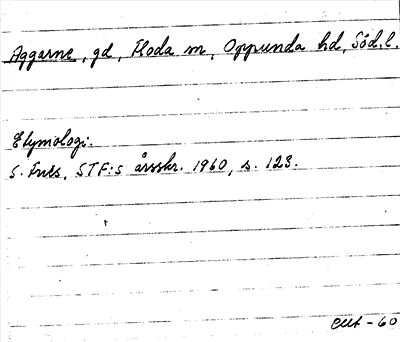 Aggarne, gd, Floda sn, Oppunda hd, Söd.l.
Etymologi.
S. Fries, STF:s årsskr. 1960, s. 123.
- 60